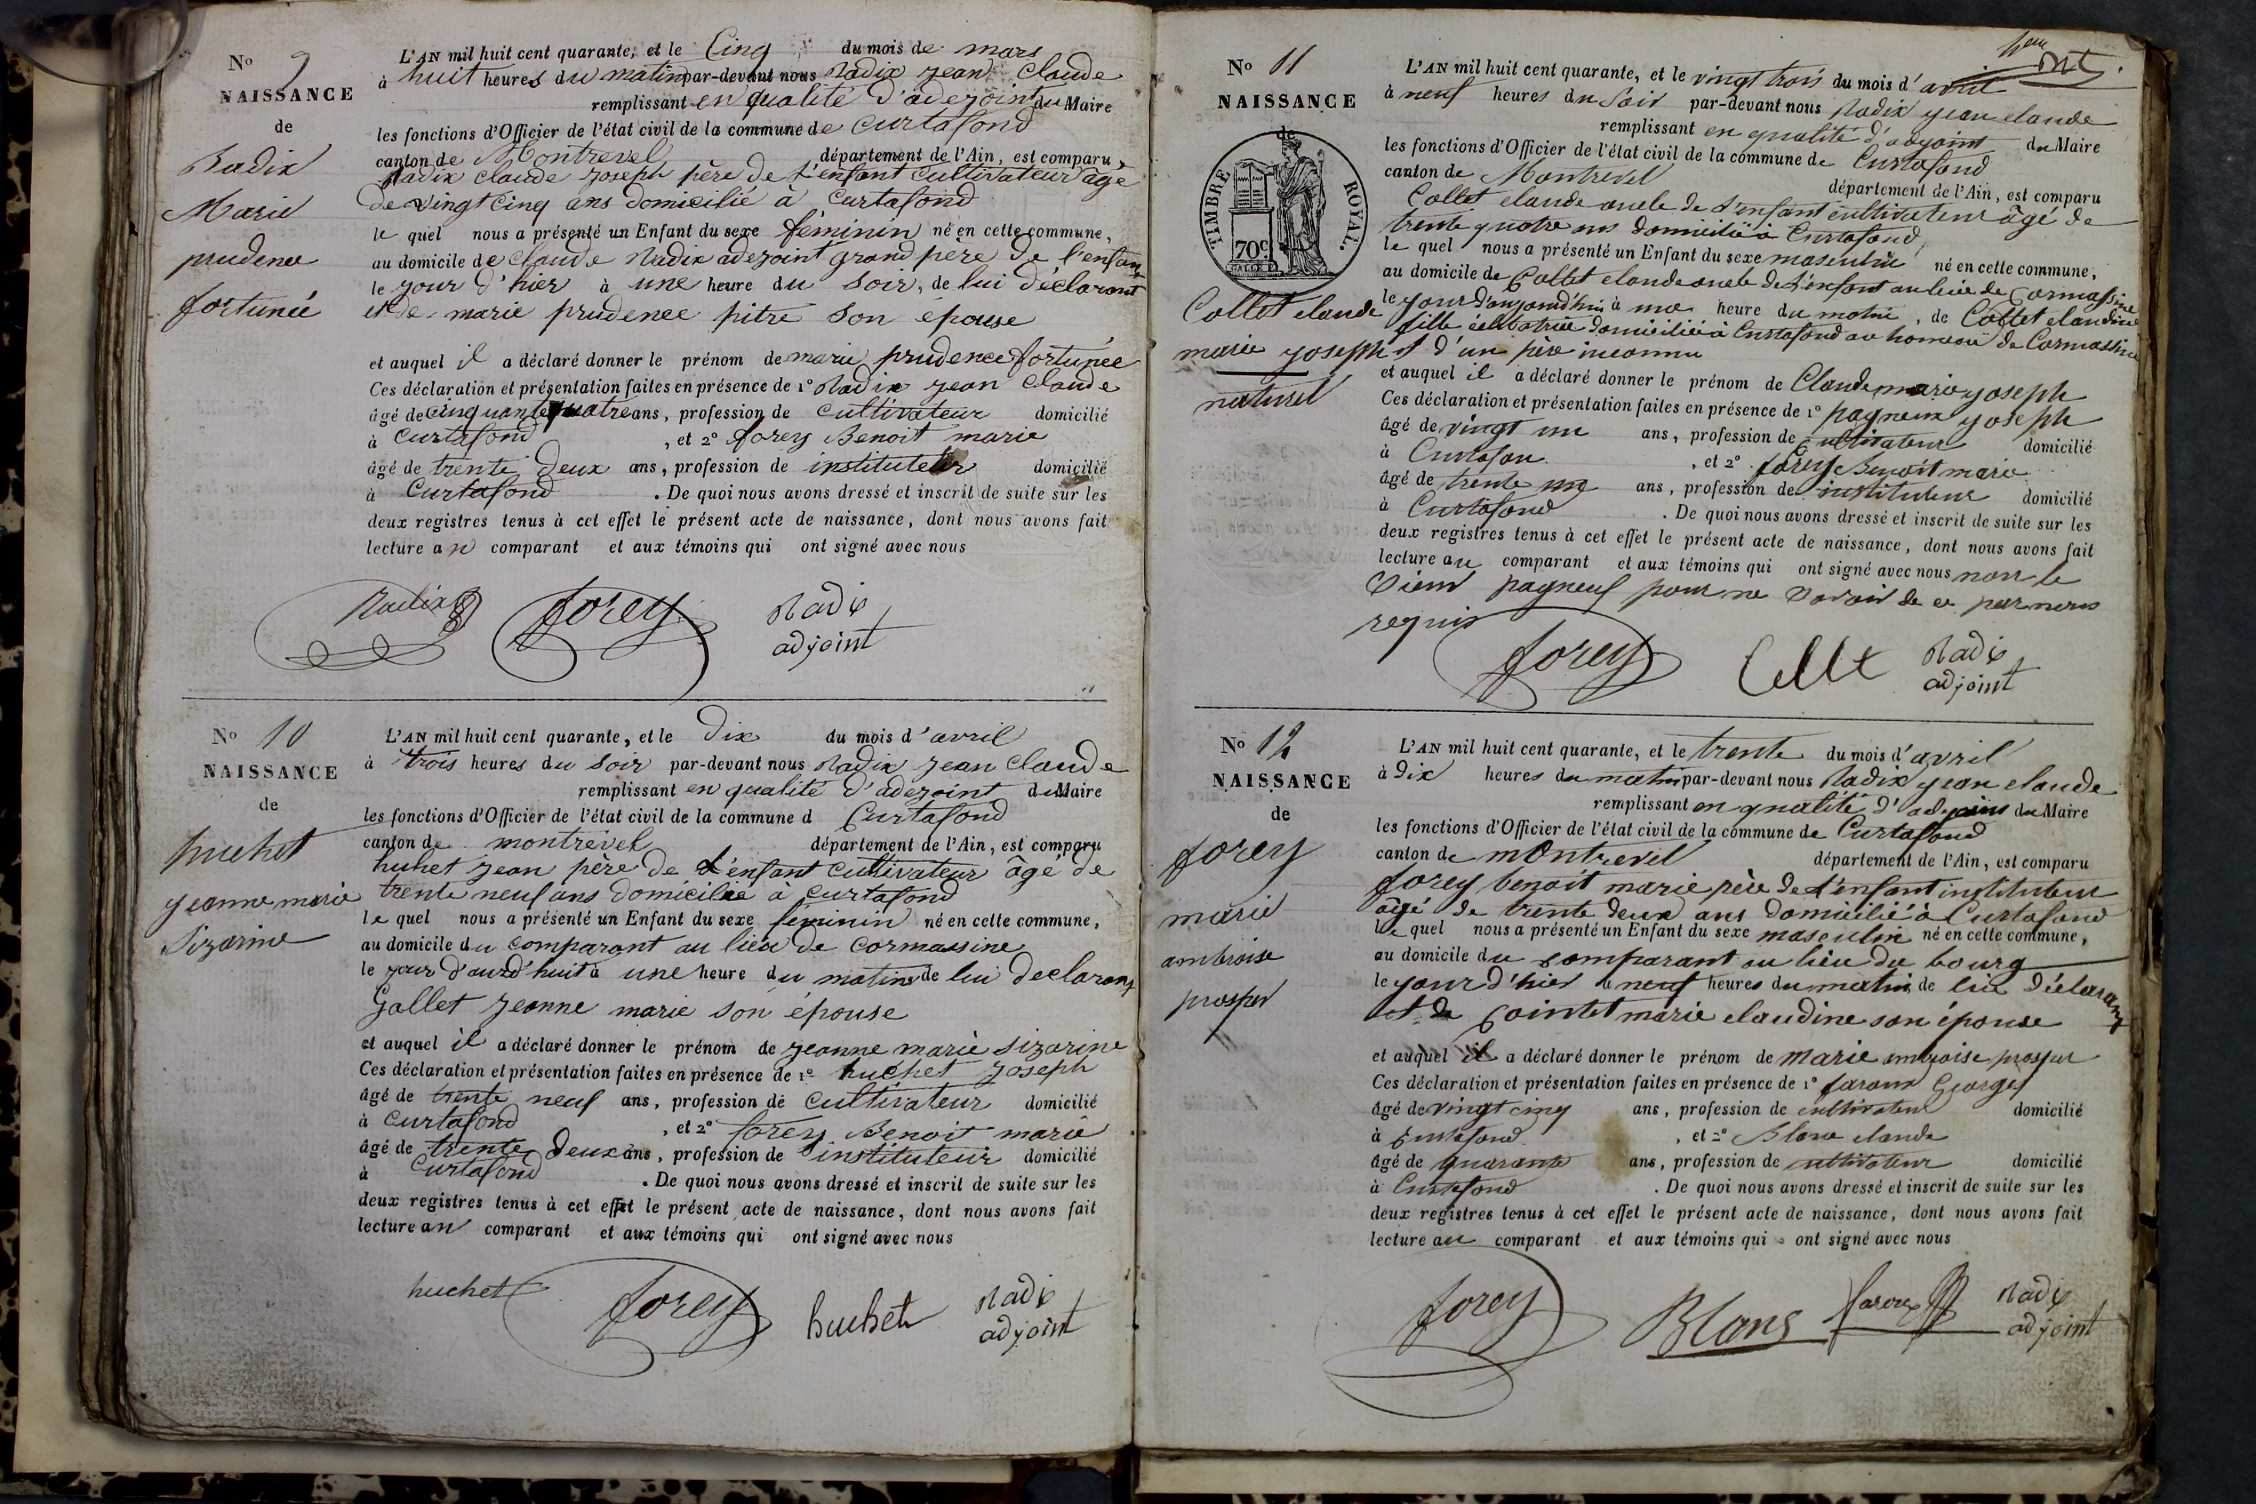 N° 9
NAISSANCE
de
Radix
Marie
prudence
fortunée
L'AN mil huit cent quarante, et le Cinq du mois de mars
à huit heures du matin par-devant nous Radix jean Claude
remplissant en qualité d'adejoint du Maire
les fonctions d'Officier de l'état civil de la commune de Curtafond
canton de Montrevel département de l'Ain, est comparu
Radix claude joseph père de l'enfant cultivateur âgé
de vingt cinq ans domicilié à Curtafond
le quel nous a présenté un Enfant du sexe féminin né en cette commune,
au domicile de Claude Radix adejoint grand père de l'enfant
le jour d'hier à une heure du soir, de lui déclarant
et de marie prudence pitre son épouse
et auquel il a déclaré donner le prénom de marie prudence fortunée
Ces déclaration et présentation faites en présence de 1° Radix jean Claude
âgé de cinquante quatre ans, profession de cultivateur domicilié
à Curtafond, et 2° forey Benoit marie
âgé de trente deux ans, profession de instituteur domicilié
à Curtafond. De quoi nous avons dressé et inscrit de suite sur les
deux registres tenus à cet effet le présent acte de naissance, dont nous avons fait
lecture au comparant et aux témoins qui ont signé avec nous
Radix forey Radix
adjoint
N° 10
NAISSANCE
de
huchet
jeanne marie
Sizarine
L'AN mil huit cent quarante, et le Dix du mois d'avril
à trois heures du soir par-devant nous Radix jean Claude
remplissant en qualité d'adejoint du Maire
les fonctions d'Officier de l'état civil de la commune d Curtafond
canton de montrevel département de l'Ain, est comparu
huhet jean père de l'enfant cultivateur âgé de
trente neuf ans domicilié à curtafond
le quel nous a présenté un Enfant du sexe féminin né en cette commune,
au domicile du comparant au lieu de cormassine
le jour d'aurd'huit à une heure du matin de lui declarant
Gallet jeanne marie son épouse
et auquel il a déclaré donner le prénom de jeanne marie sizarine
Ces déclaration et présentation faites en présence de 1° huchet joseph
âgé de trente neuf ans, profession de cultivateur domicilié
à Curtafond, et 2° forey Benoit marie
âgé de trente deux ans, profession de instituteur domicilié
à Curtafond. De quoi nous avons dressé et inscrit de suite sur les
deux registres tenus à cet effet le présent acte de naissance, dont nous avons fait
lecture au comparant et aux témoins qui ont signé avec nous
huchet forey huchet Radix
adjoint
N° 11
NAISSANCE
de
TIMBRE ROYAL.
70c.
Collet claude
marie joseph
naturel
L'AN mil huit cent quarante, et le vingt trois du mois d'avril
à neuf heures du Soir par-devant nous Radix jean claude
remplissant en qualité d'adjoint du Maire
les fonctions d'Officier de l'état civil de la commune de Curtafond
canton de Montrevel département de l'Ain, est comparu
Collet claude oncle de l'enfant cultivateur âgé de
trente quatre ans domicilié à Curtafond
le quel nous a présenté un Enfant du sexe masculin né en cette commune,
au domicile de Collet claude oncle de l'enfant au lieu de Cormassine
le jour d'aujourd'hui à une heure du matin, de Collet claudine
fille célibatrice domiciliée à Curtafond au homeau de Cormassine
et d'un père inconnu
et auquel il a déclaré donner le prénom de Claude marie joseph
Ces déclaration et présentation faites en présence de 1° pagneux joseph
âgé de vingt un ans, profession de cultivateur domicilié
à Curtafon, et 2° forey Benoit marie
âgé de trente une ans, profession de instituteur domicilié
à Curtafond. De quoi nous avons dressé et inscrit de suite sur les
deux registres tenus à cet effet le présent acte de naissance, dont nous avons fait
lecture au comparant et aux témoins qui ont signé avec nous non le
Sieur pagneux pour ne savoir de ce par nous
requis
forey Radix
adjoint
N° 12
NAISSANCE
de
forey
marie
ambroise
prosper
L'AN mil huit cent quarante, et le trente du mois d'avril
à dix heures du matin par-devant nous Radix jean claude
remplissant en qualité d'adejoint du Maire
les fonctions d'Officier de l'état civil de la commune de Curtafond
canton de montrevel département de l'Ain, est comparu
forey benoit marie père de l'enfant instituteur
âgé de trente deux ans domicilié à Curtafond
le quel nous a présenté un Enfant du sexe masculin né en cette commune,
au domicile du comparant au lieu du bourg
le jour d'hier à neuf heures du matin de lui déclarant
et de Cointet marie claudine son épouse
et auquel il a déclaré donner le prénom de marie ambroise prosper
Ces déclaration et présentation faites en présence de 1° faroux Georges
âgé de vingt cinq ans, profession de cultivateur domicilié
à Curtafond, et 2° Blanc claude
âgé de quarante ans, profession de cultivateur domicilié
à Curtafond. De quoi nous avons dressé et inscrit de suite sur les
deux registres tenus à cet effet le présent acte de naissance, dont nous avons fait
lecture au comparant et aux témoins qui ont signé avec nous
forey Blanc faroux Radix
adjoint